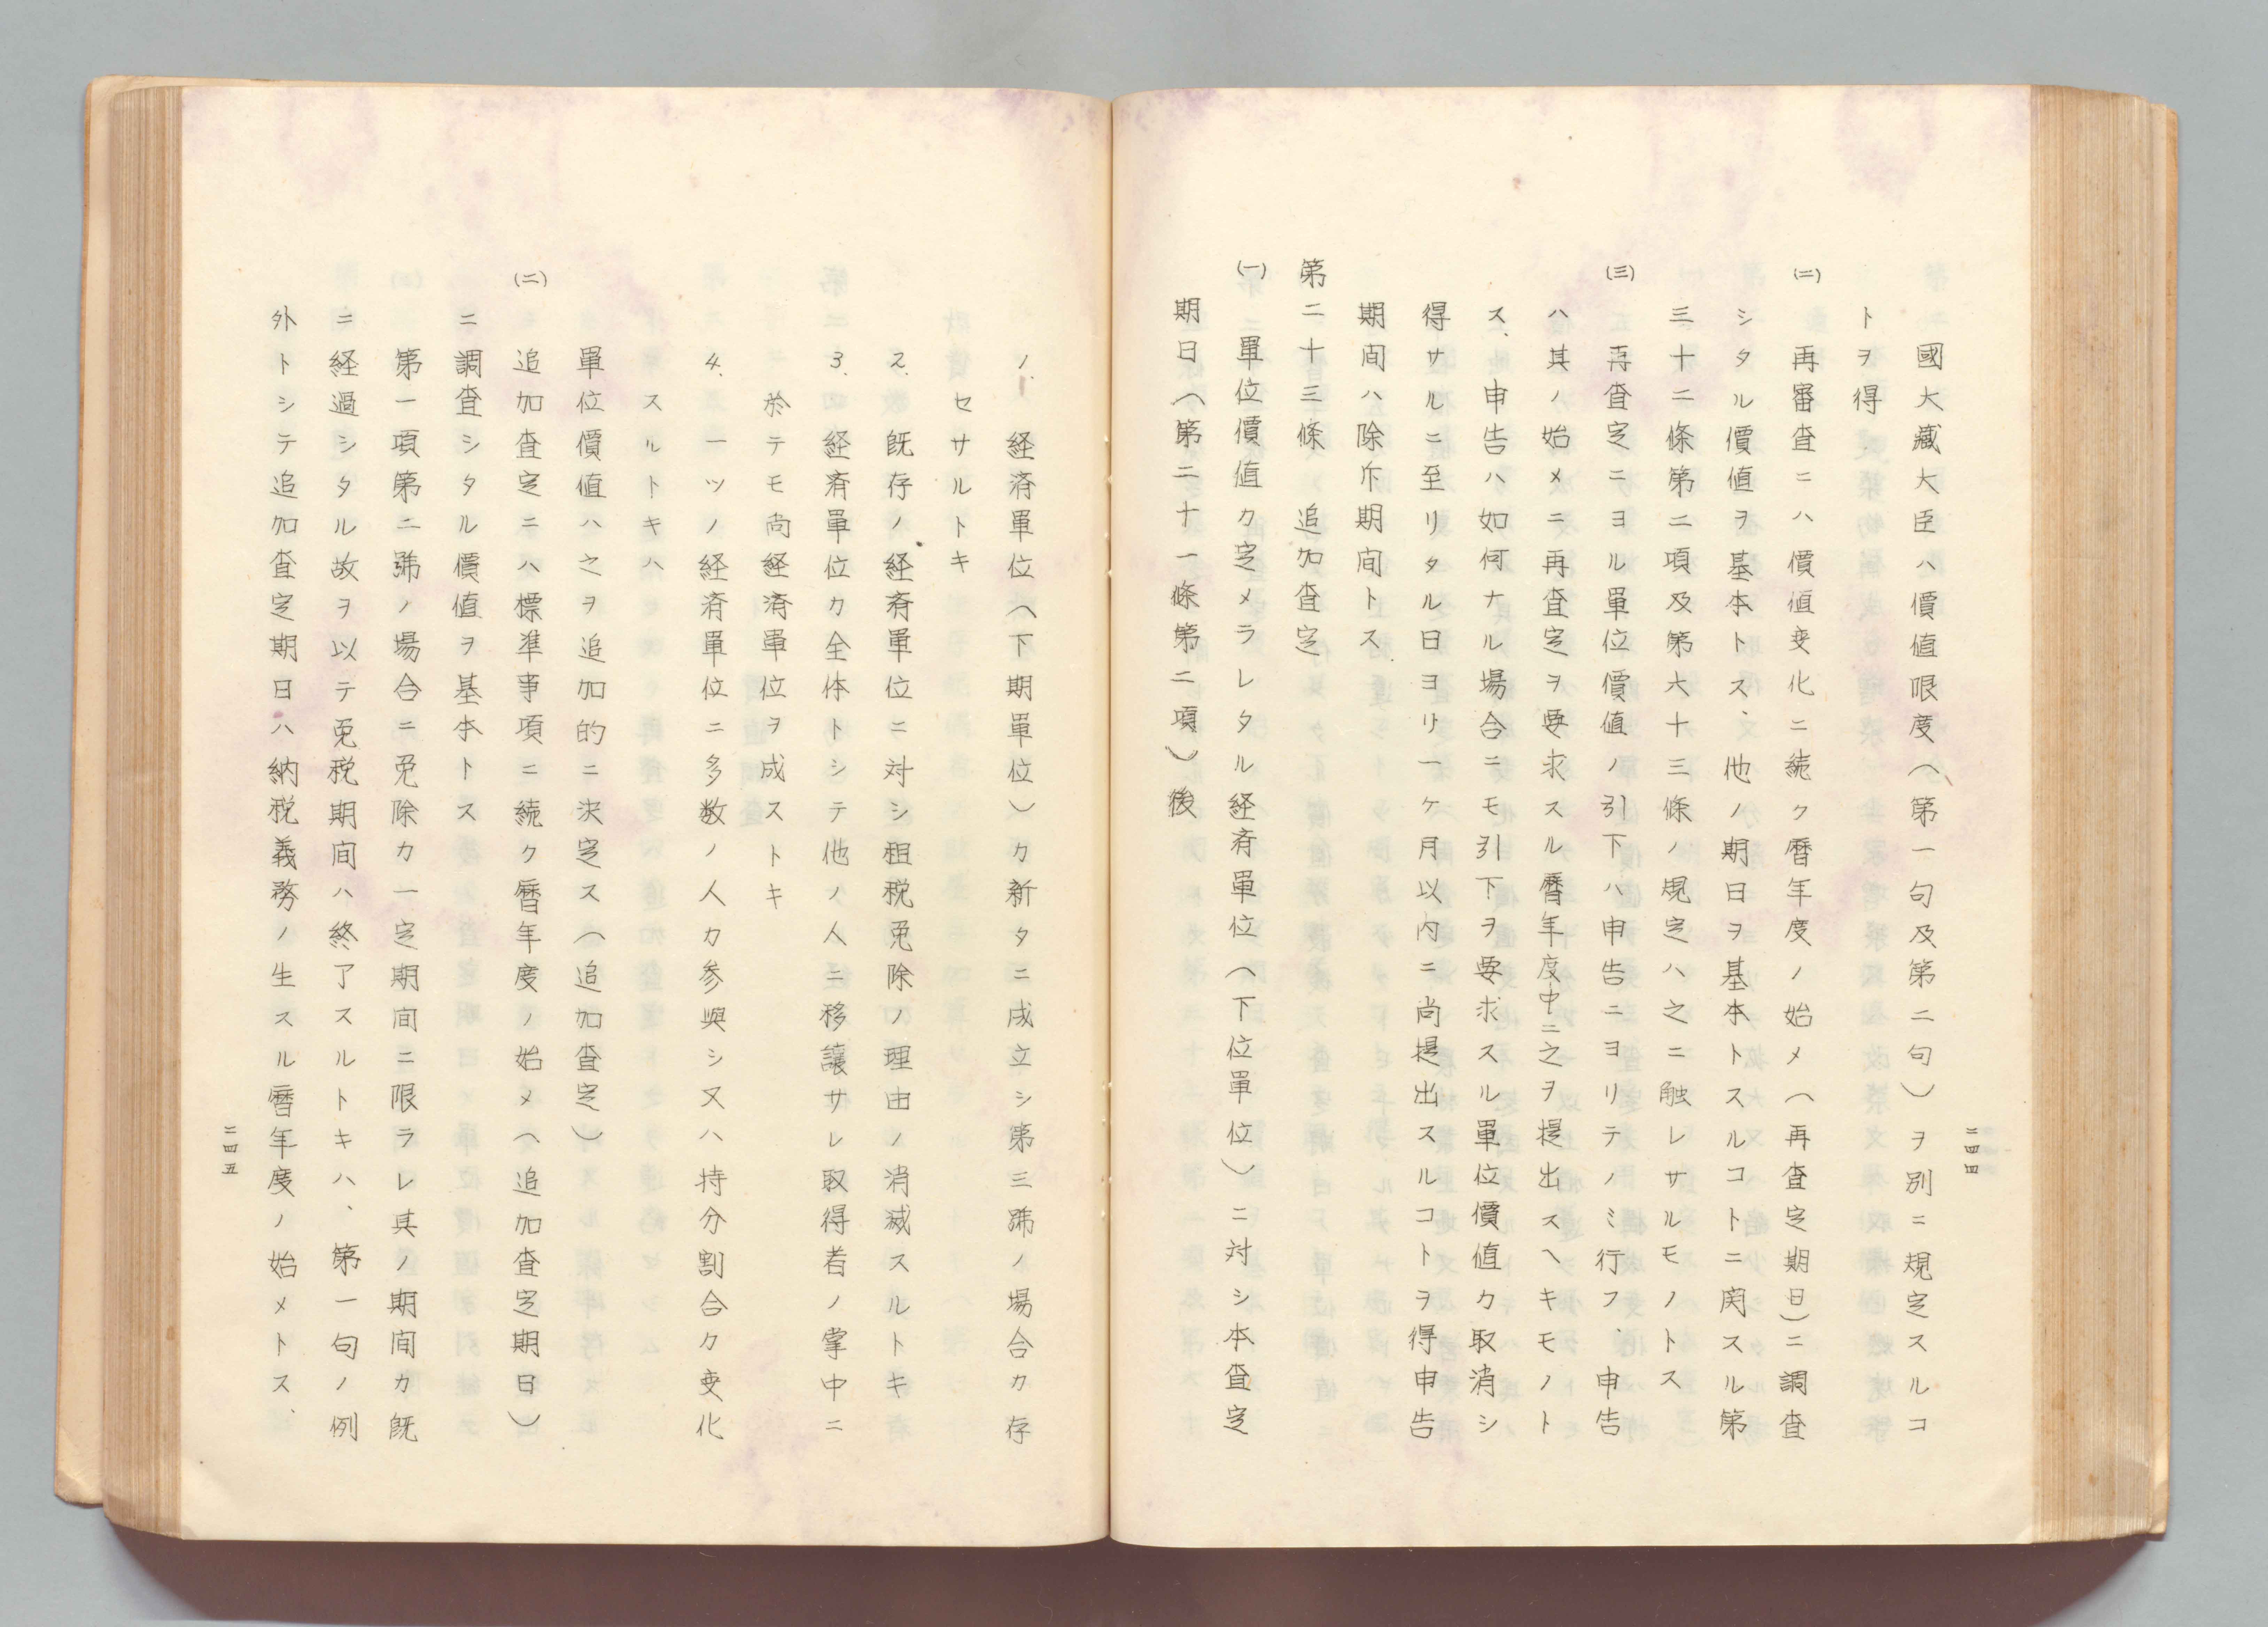 國大藏大臣ハ價値限度(第一句及第二句)ヲ別ニ規定スルコ
トヲ得.
(二) 再審査ニハ價値変化ニ続ク暦年度ノ始メ(再査定期日)ニ調査
シタル價値ヲ基本トス、他ノ期日ヲ基本トスルコトニ関スル第
三十二條第二項及第六十三條ノ規定ハ之ニ触レサルモノトス
(三) 再査定ニヨル單位價値ノ引下ハ申告ニヨリテノミ行フ、申告
ハ其ノ始メニ再査定ヲ要求スル暦年度中ニ之ヲ提出スヘキモノト
ス、申告ハ如何ナル場合ニモ引下ヲ要求スル單位價値カ取消シ
得サルニ至リタル日ヨリ一ケ月以内ニ尚提出スルコトヲ得申告
期间ハ除斥期间トス.
第二十三條 追加査定
(一) 單位價値カ定メラレタル経済單位(下位單位)ニ対シ本査定
期日(第二十一條第二項)後
二四四
1. 経済單位(下期單位)カ新タニ成立シ第三號ノ場合カ存
セサルトキ
2. 既存ノ経済單位ニ対シ租税免除ノ理由ノ消滅スルトキ
3. 経済單位カ全体トシテ他ノ人ニ移譲サレ取得者ノ掌中ニ
於テモ尚経済單位ヲ成ストキ
4. 一ツノ経済單位ニ多数ノ人カ参與シ又ハ持分割合カ変化
スルトキハ
單位價値ハ之ヲ追加的ニ决定ス(追加査定)
(二) 追加査定ニハ標準事項ニ続ク暦年度ノ始メ(追加査定期日)
ニ調査シタル價値ヲ基本トス
第一項第二號ノ場合ニ免除カ一定期间ニ限ラレ其ノ期间カ既
ニ経過シタル故ヲ以テ免税期间ハ終了スルトキハ、第一句ノ例
外トシテ追加査定期日ハ納税義務ノ生スル暦年度ノ始メトス、
二四五